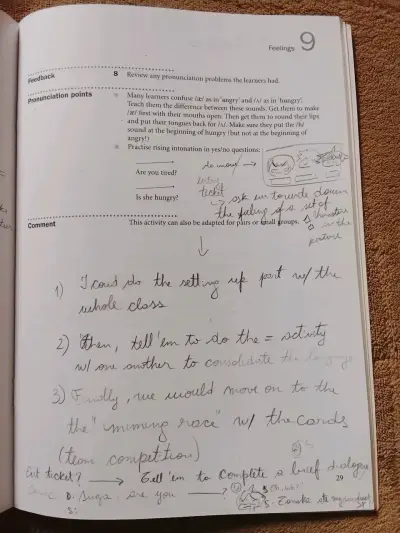 Feelings 9
Feedback
8 Review any pronunciation problems the learners had.
Pronunciation points
Many learners confuse /æ/ as in 'angry' and /ʌ/ as in 'hungry'.
Teach them the difference between these sounds. Get them to make
/æ/ first with their mouths open. Then get them to round their lips
and put their tongues back for /ʌ/. Make sure they put the /h/
sound at the beginning of hungry (but not at the beginning of
angry!)
Practise rising intonation in yes/no questions:
Are you tired?
Is she hungry?
ticket
ask 'em to write down
the feeling of a set of
in the
picture
Comment
This activity can also be adapted for pairs or small groups.
1) I could do the setting up part w/ the
whole class
2) Then, tell 'em to do the = activity
w/ one another to consolidate the language
3) Finally, we would move on to the
the "miming race" w/ the cards
(team competition)
Exit ticket? → Tell 'em to complete a brief dialogue
29
are you
S: